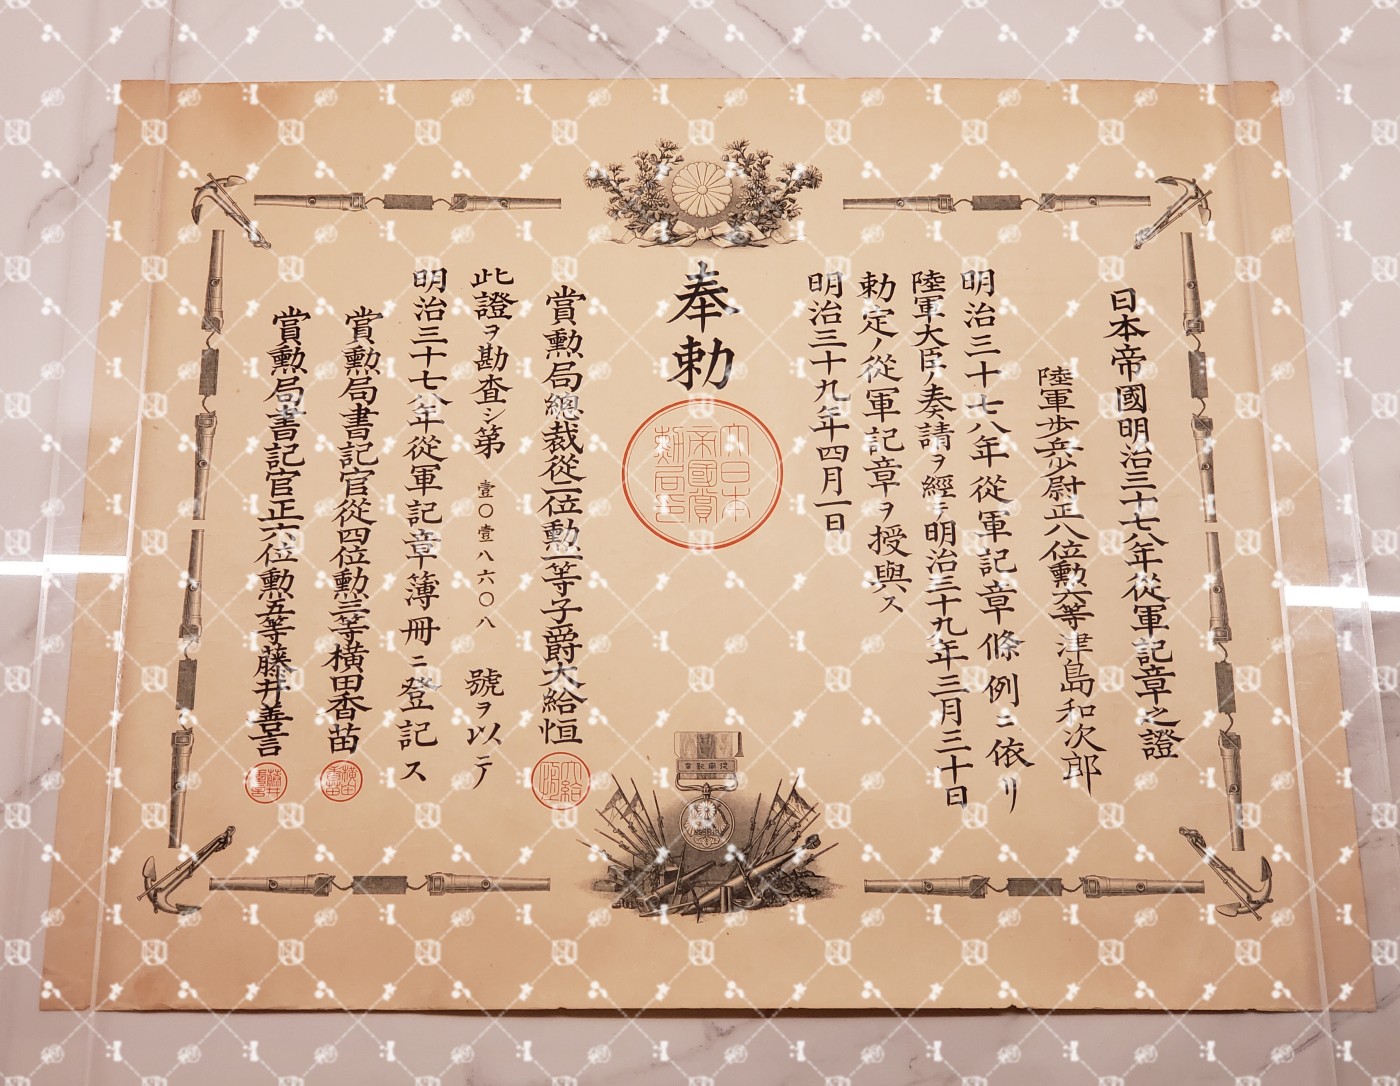 日本帝國明治三十七八年從軍記章之證
陸軍歩兵少尉正八位勲六等津島和次郎
明治三十七八年從軍記章條例ニ依リ
陸軍大臣ノ奏請ヲ經ニ明治三十九年三月三十日
勅定ノ從軍記章ヲ授與ス
明治三十九年四月一日
奉勅
大日本
帝國賞
勲局印
賞勲局總裁從二位勲一等子爵大給恒
此證ヲ勘査シ第壹〇壹八六〇八號ヲ以テ
明治三十七八年從軍記章薄冊ニ登記ス
賞勲局書記官從四位勲三等横田香苗
賞勲局書記官正六位勲五等藤井善言